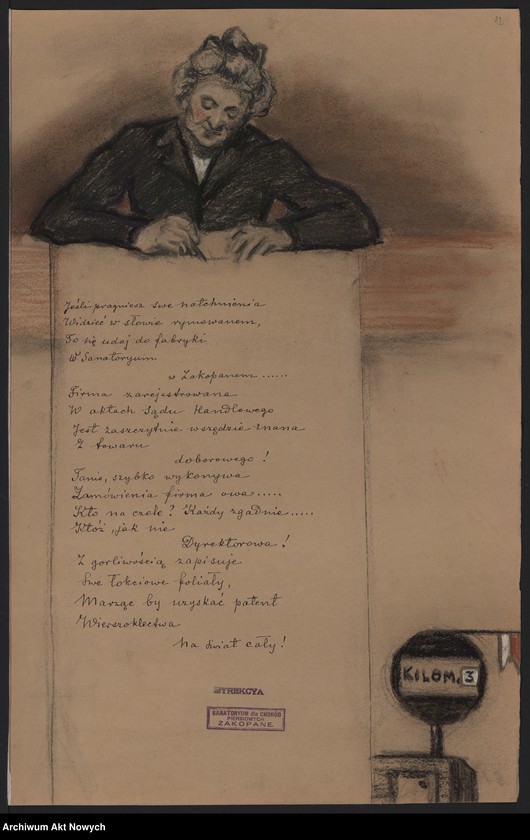 12
Jeśli pragniesz swe natchnienia
Widzieć w słowie rymowanem,
To się udaj do fabryki
W Sanatoryum
w Zakopanem ......
Firma zarejestrowana
W aktach Sądu Handlowego
Jest zaszczytnie wszędzie znana
Z towaru
doborowego !
Tanio, szybko wykonywa
Zamówienia firma owa .....
Kto na czele ? Każdy zgadnie .....
Któż, jak nie
Dyrektorowa !
Z gorliwością zapisuje
Swe łokciowe foliały,
Marząc by uzyskać patent
Wierszoklectwa
Na świat cały !
DYREKCYA
SANATORYUM dla CHORÓB
PIERSIOWYCH
ZAKOPANE.
KILOM. 3
Archiwum Akt Nowych